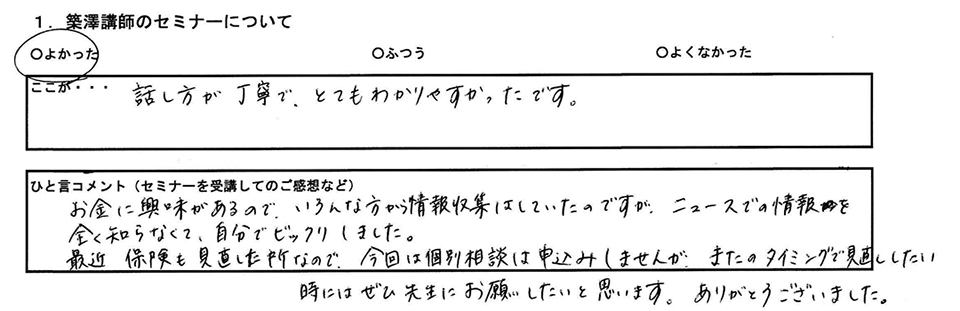 1．築澤講師のセミナーについて
○よかった ○ふつう ○よくなかった
ここが・・・
話し方が丁寧で、とてもわかりやすかったです。
ひと言コメント（セミナーを受講してのご感想など）
お金に興味があるので、いろんな方から情報収集はしていたのですが、ニュースでの情報を
全く知らなくて、自分でビックリしました。
最近 保険も見直した所なので、今回は個別相談は申込みしませんが、またのタイミングで見直ししたい
時にはぜひ先生にお願いしたいと思います。ありがとうございました。